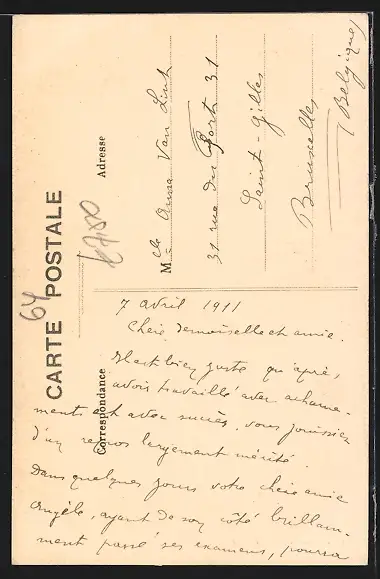 CARTE POSTALE
64
Correspondance
Adresse
7 avril 1911
Chère demoiselle et amie.
Il est bien juste qu'après,
avoir travaillé avec acharne-
ment et avec succès, vous jouissiez
d'un repos largement mérité.
Dans quelques jours votre chère amie
Angèle, ayant de son côté brillam-
ment passé ses examens, pourra
Melle Anna Van Lint
31 rue du Fort 31
Saint-Gilles
Bruxelles
(Belgique)